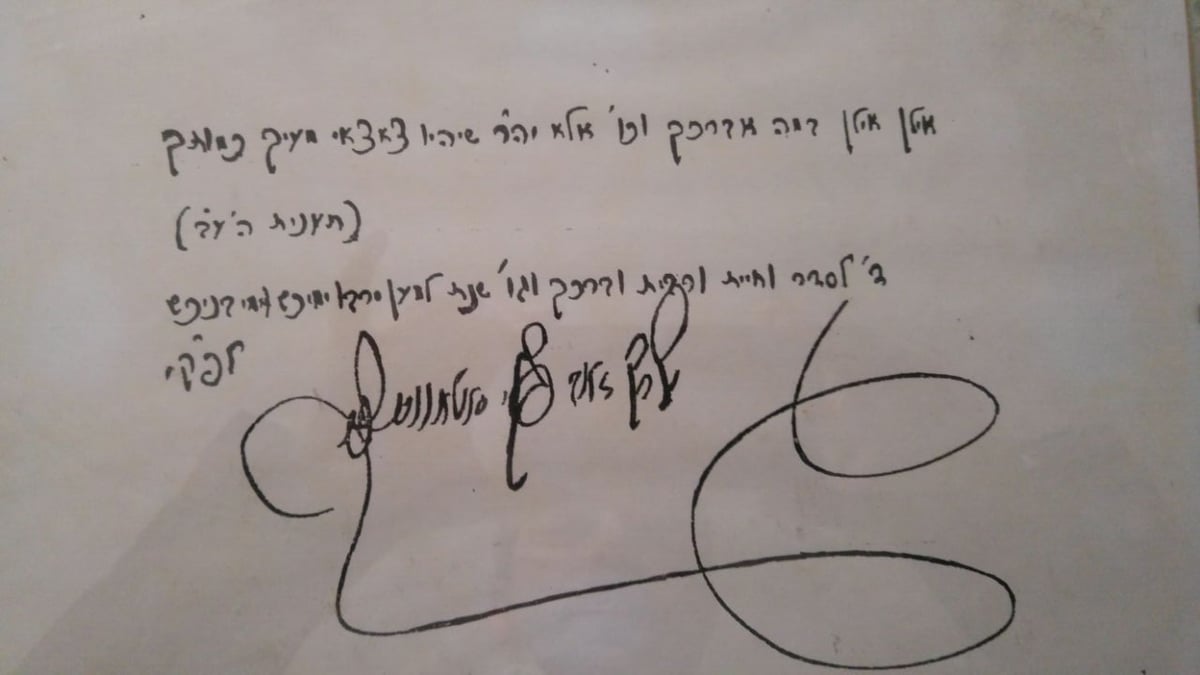 אילן אילן במה אברכך וכו' אלא יה"ר שיהיו צאצאי מעיך כמותך
(תענית ה' ע"ב)
ב' לסדר וחיית ורבית וברכך וגו' שנת למען ירבו ימיכם וימי בניכם
לפ"ק
זאב